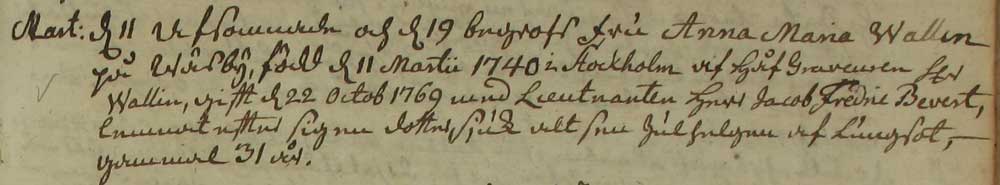 Mart: d 11 Afsomnade och d 19 begrofs Fru Anna Maria Wallin
på Wäsby, född d 11 Martii 1740 i Stockholm af Håf Graveuren Herr
Wallin, gifft d 22 Octob 1769 med Lieutnanten Herr Jacob Fredric Bevert,
lemnat efter sig en dotter, siuk alt sen Julhelgen af Lungsot,
gammal 31 år.